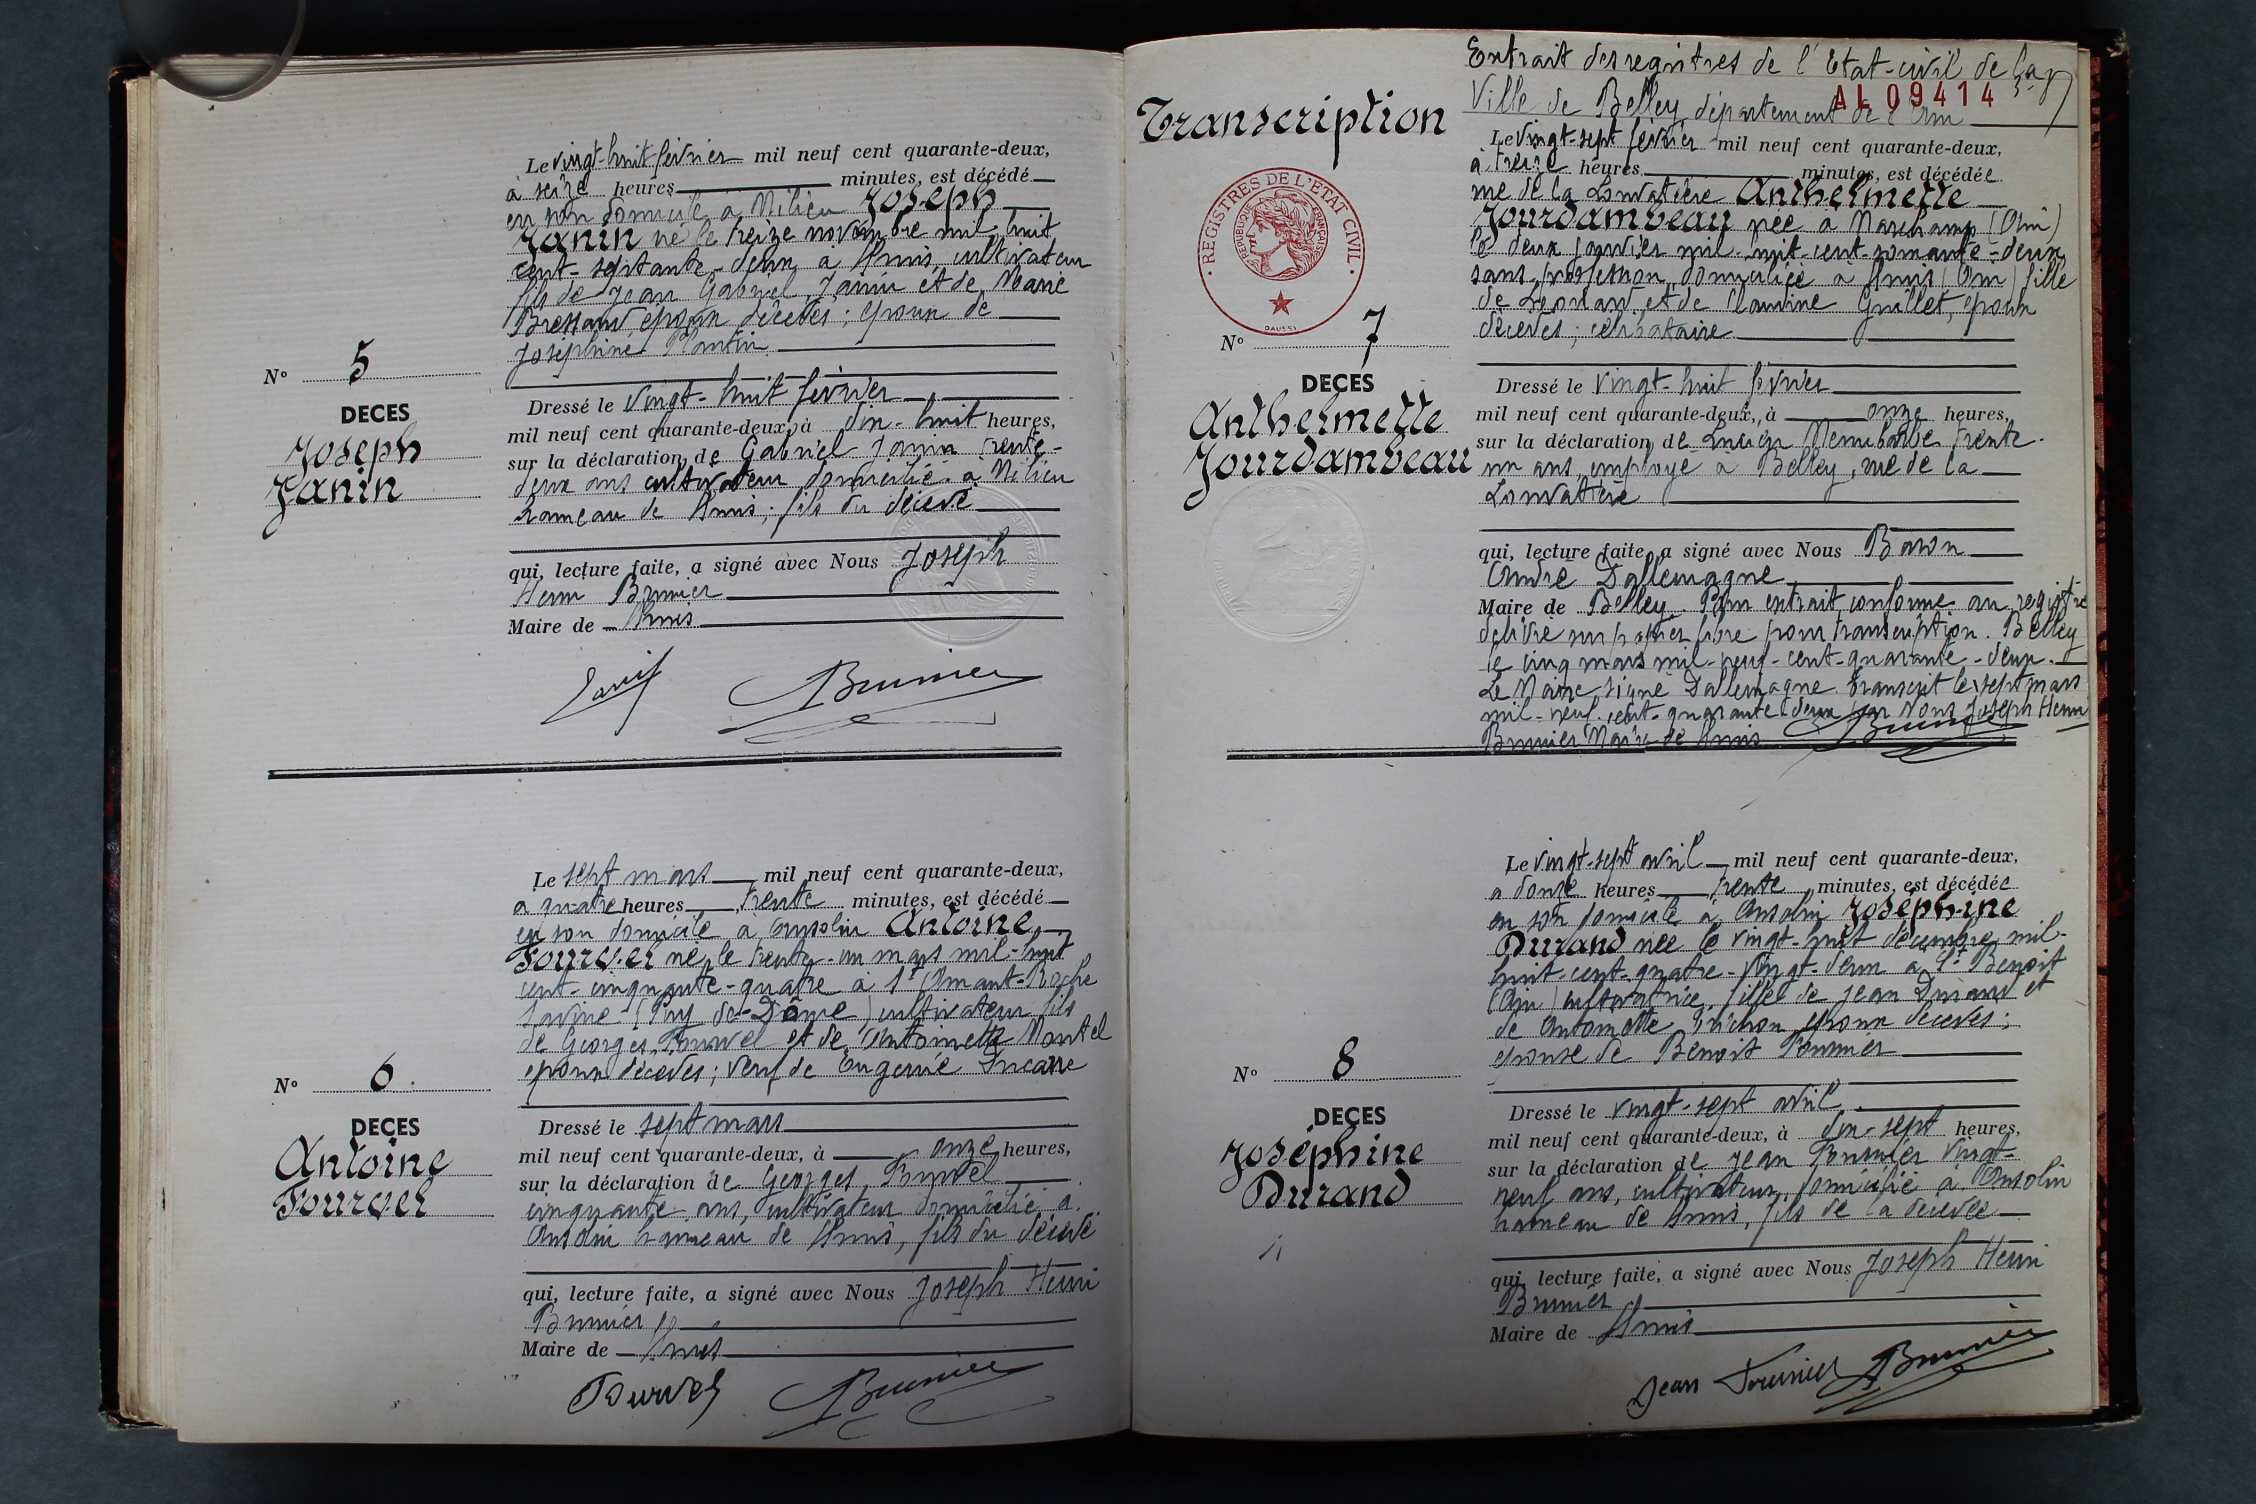 Le vingt-huit février mil neuf cent quarante-deux,
à seize heures minutes, est décédé
en son domicile à Milieu Joseph
Janin né le treize novembre mil huit
cent-septante-deux a cultivateur
fils de Jean Gabriel Janin et de Marie
époux décédés; époux de
Joséphine
N° 5
DECES
Joseph
Janin
Dressé le vingt-huit février
mil neuf cent quarante-deux, à dix-huit heures,
sur la déclaration de Gabriel Janin trente-
deux ans cultivateur domicilié à Milieu
hameau de ; fils du décédé
qui, lecture faite, a signé avec Nous Joseph
Henri Brunier
Maire de
Janin Brunier
Le sept mars mil neuf cent quarante-deux,
a quatre heures trente minutes, est décédé
en son domicile à Ansolin Antoine
Fourvel né le trente-un mars mil-huit
cent-cinquante-quatre à St Amant-Roche
Savine (Puy de-Dôme) cultivateur fils
de Georges Fourvel et de Antoinette Montel
époux décédés; veuf de Eugénie
N° 6.
DECES
Antoine
Fourvel
Dressé le sept mars
mil neuf cent quarante-deux, à onze heures,
sur la déclaration de Georges Fourvel
cinquante ans, cultivateur domicilié à
Ansolin hameau de , fils du décédé
qui, lecture faite, a signé avec Nous Joseph Henri
Brunier
Maire de
Fourvel Brunier
Extrait des registres de l'Etat-civil de la
AL 09414
Ville de Belley département de l'Ain
Transcription
Le vingt-sept février mil neuf cent quarante-deux,
à treize heures minutes, est décédée
rue de la Louvatière Anthelmette
Jourdambeau née à Marchamp (Ain)
le deux janvier mil-huit-cent-soixante-deux
sans profession domiciliée à (Ain) fille
de Léonard et de Claudine Guillet, époux
décédés; célibataire
REGISTRES DE L'ETAT CIVIL
REPUBLIQUE FRANÇAISE
DAUSSI
N° 7
DECES
Anthelmette
Jourdambeau
Dressé le vingt-huit février
mil neuf cent quarante-deux, à onze heures,
sur la déclaration de trente-
un ans, employé à Belley, rue de la
Louvatière
qui, lecture faite, a signé avec Nous Baron
André Dallemagne
Maire de Belley. Pour extrait conforme au registre
délivré sur papier libre pour transcription. Belley
le cinq mars mil-neuf-cent-quarante-deux.
Le Maire signé Dallemagne. Transcrit le sept mars
mil-neuf-cent-quarante-deux par Nous Joseph Henri
Brunier Maire de Brunier
Le vingt-sept avril mil neuf cent quarante-deux,
a douze heures trente minutes, est décédée
en son domicile à Ansolin Joséphine
Durand née le vingt-huit décembre mil-
huit-cent-quatre-vingt-deux à St Benoit
(Ain) cultivatrice, fille de Jean Durand et
de Antoinette époux décédés;
épouse de Benoit Fournier
N° 8
DECES
Joséphine
Durand
Dressé le vingt-sept avril
mil neuf cent quarante-deux, à dix-sept heures,
sur la déclaration de Jean Fournier vingt-
neuf ans, cultivateur, domicilié à Ansolin
hameau de , fils de la décédée
qui, lecture faite, a signé avec Nous Joseph Henri
Brunier
Maire de
Jean Fournier Brunier